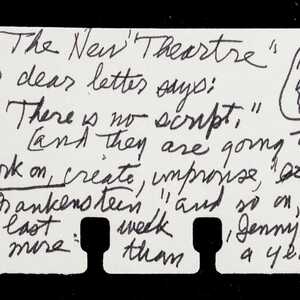 The New "Theartre"
dear letter says:
There is no script,"
[and they are going
work on, create, improvise,
Frankenstein" and so on,
last week, Jenny
more: than a ye